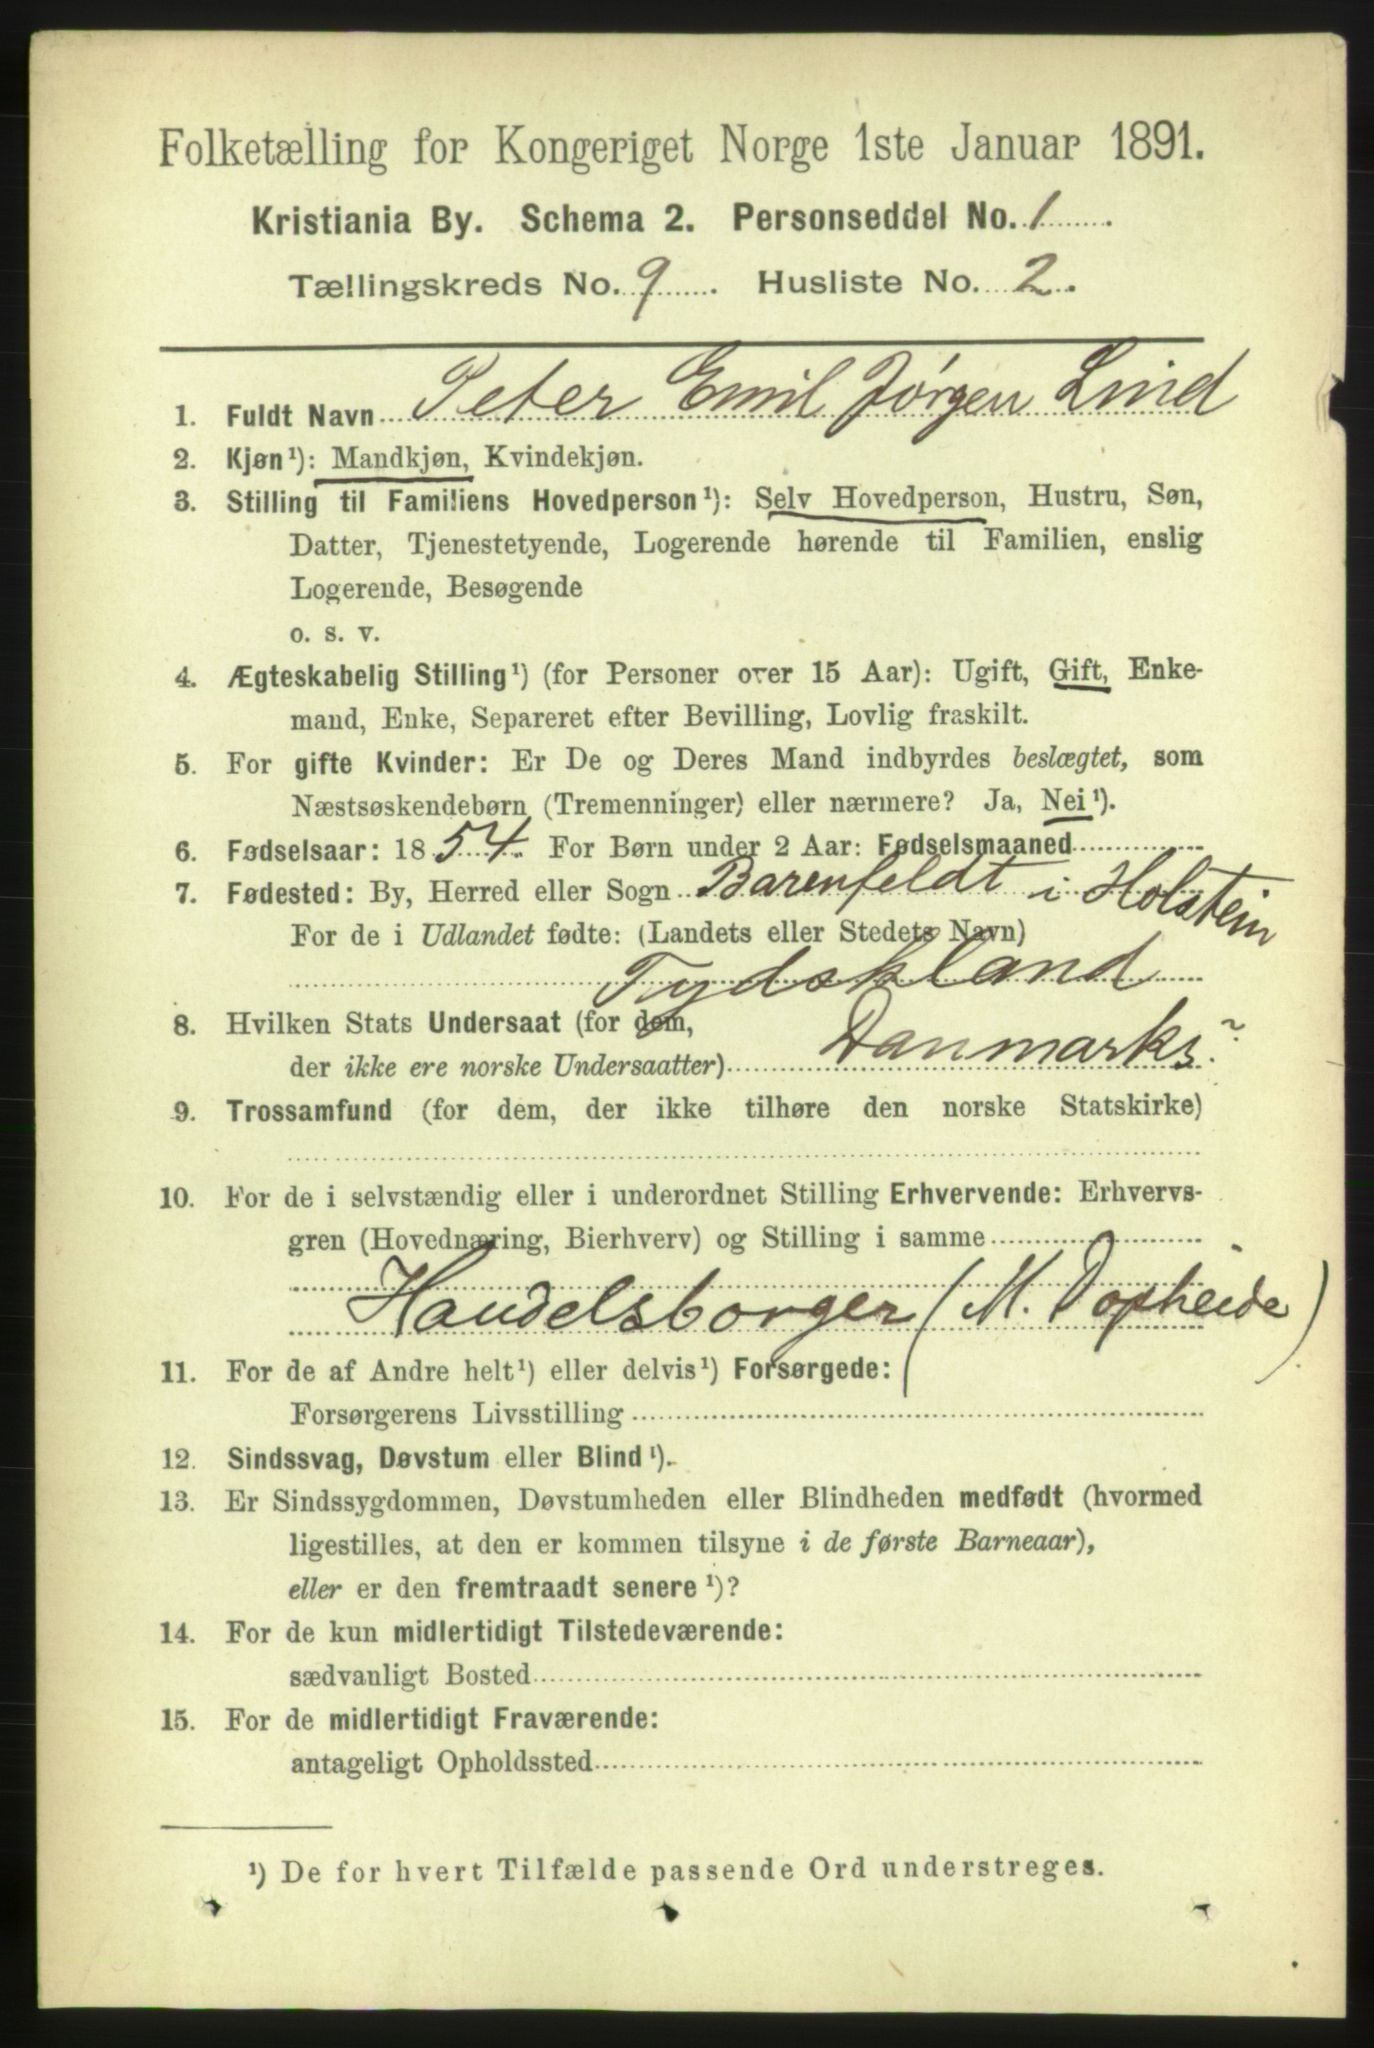 Folketælling for Kongeriget Norge 1ste Januar 1891.
Kristiania By. Schema 2. Personseddel No. 1
Tællingskreds No. 9. Husliste No. 2.
1. Fuldt Navn Peter Emil Jørgen Lind
2. Kjøn¹): Mandkjøn, Kvindekjøn.
3. Stilling til Familiens Hovedperson¹): Selv Hovedperson, Hustru, Søn,
Datter, Tjenestetyende, Logerende hørende til Familien, enslig
Logerende, Besøgende
o. s. v.
4. Ægteskabelig Stilling¹) (for Personer over 15 Aar): Ugift, Gift, Enke-
mand, Enke, Separeret efter Bevilling, Lovlig fraskilt.
5. For gifte Kvinder: Er De og Deres Mand indbyrdes beslægtet, som
Næstsøskendebørn (Tremenninger) eller nærmere? Ja, Nei¹).
6. Fødselsaar: 1854. For Børn under 2 Aar: Fødselsmaaned
7. Fødested: By, Herred eller Sogn Barenfeldt i Holstein
For de i Udlandet fødte: (Landets eller Stedets Navn)
Tydskland
8. Hvilken Stats Undersaat (for dem,
der ikke ere norske Undersaatter) Danmarks?
9. Trossamfund (for dem, der ikke tilhøre den norske Statskirke)
10. For de i selvstændig eller i underordnet Stilling Erhvervende: Erhvervs-
gren (Hovednæring, Bierhverv) og Stilling i samme
Handelsborger (M. Dopheide)
11. For de af Andre helt¹) eller delvis¹) Forsørgede:
Forsørgerens Livsstilling
12. Sindssvag, Døvstum eller Blind¹).
13. Er Sindssygdommen, Døvstumheden eller Blindheden medfødt (hvormed
ligestilles, at den er kommen tilsyne i de første Barneaar),
eller er den fremtraadt senere¹)?
14. For de kun midlertidigt Tilstedeværende:
sædvanligt Bosted
15. For de midlertidigt Fraværende:
antageligt Opholdssted
¹) De for hvert Tilfælde passende Ord understreges.